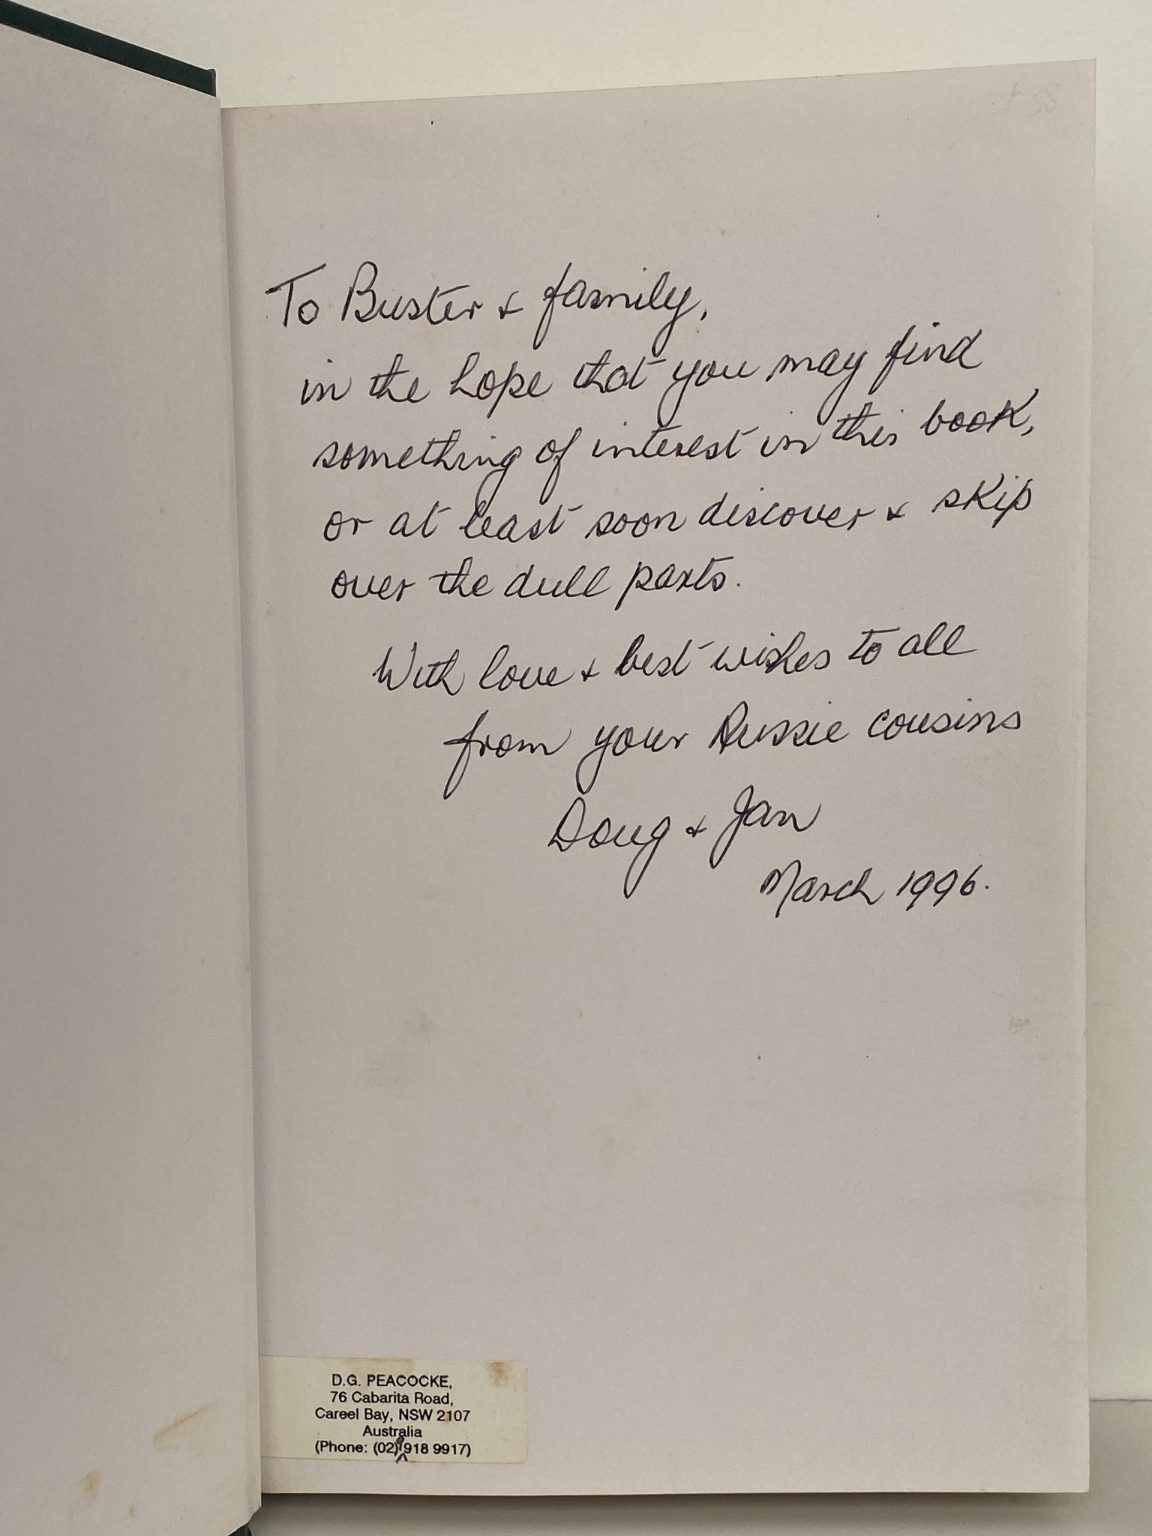 To Buster & family,
in the hope that you may find
something of interest in this book,
or at least soon discover & skip
over the dull parts.
With love & best wishes to all
from your Aussie cousins
Doug & Jan
March 1996.
D.G. PEACOCKE,
76 Cabarita Road,
Careel Bay, NSW 2107
Australia
(Phone: (02) 918 9917)